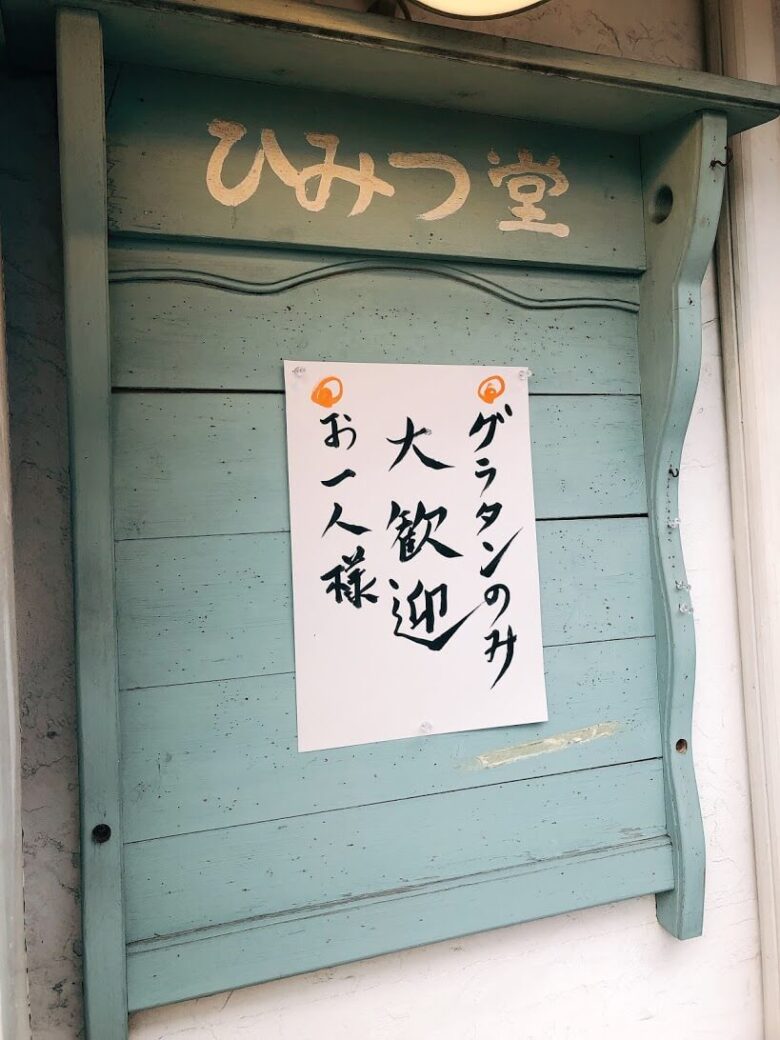 ひみつ堂
グラタンのみ
大歓迎
お一人様